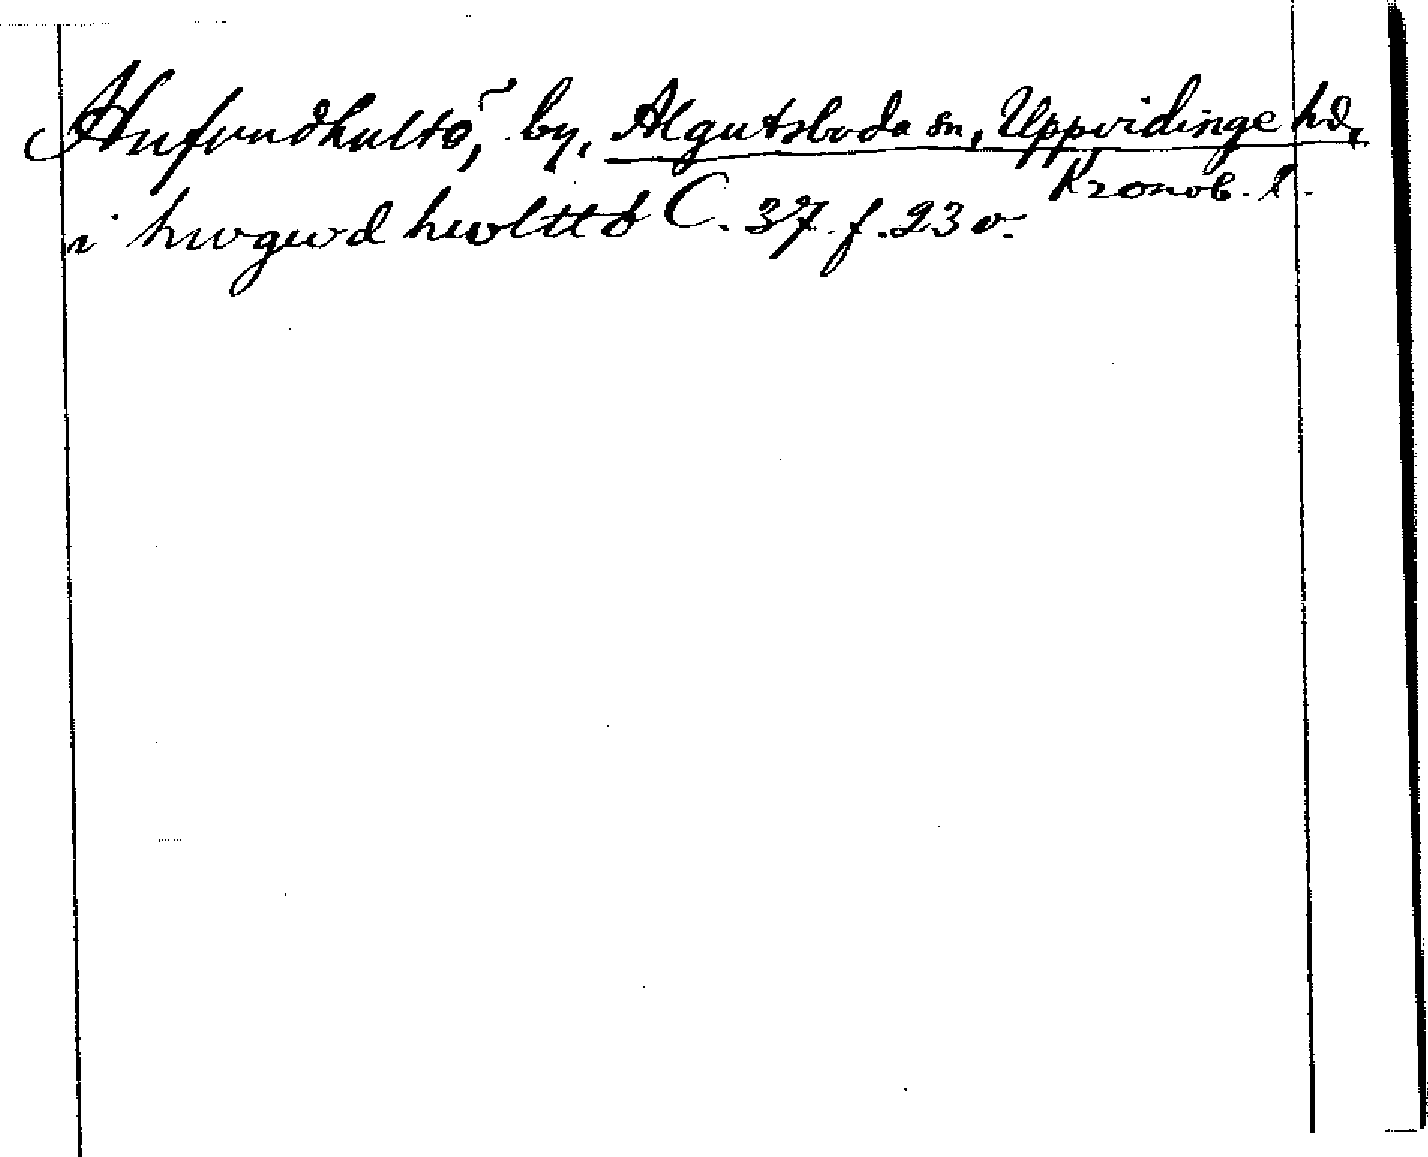 Hufvudhultö, by, Algutsboda sn, Uppvidinge hd,
Kronob. l.
i hwgwd hwlttö C. 37. f. 23 v.